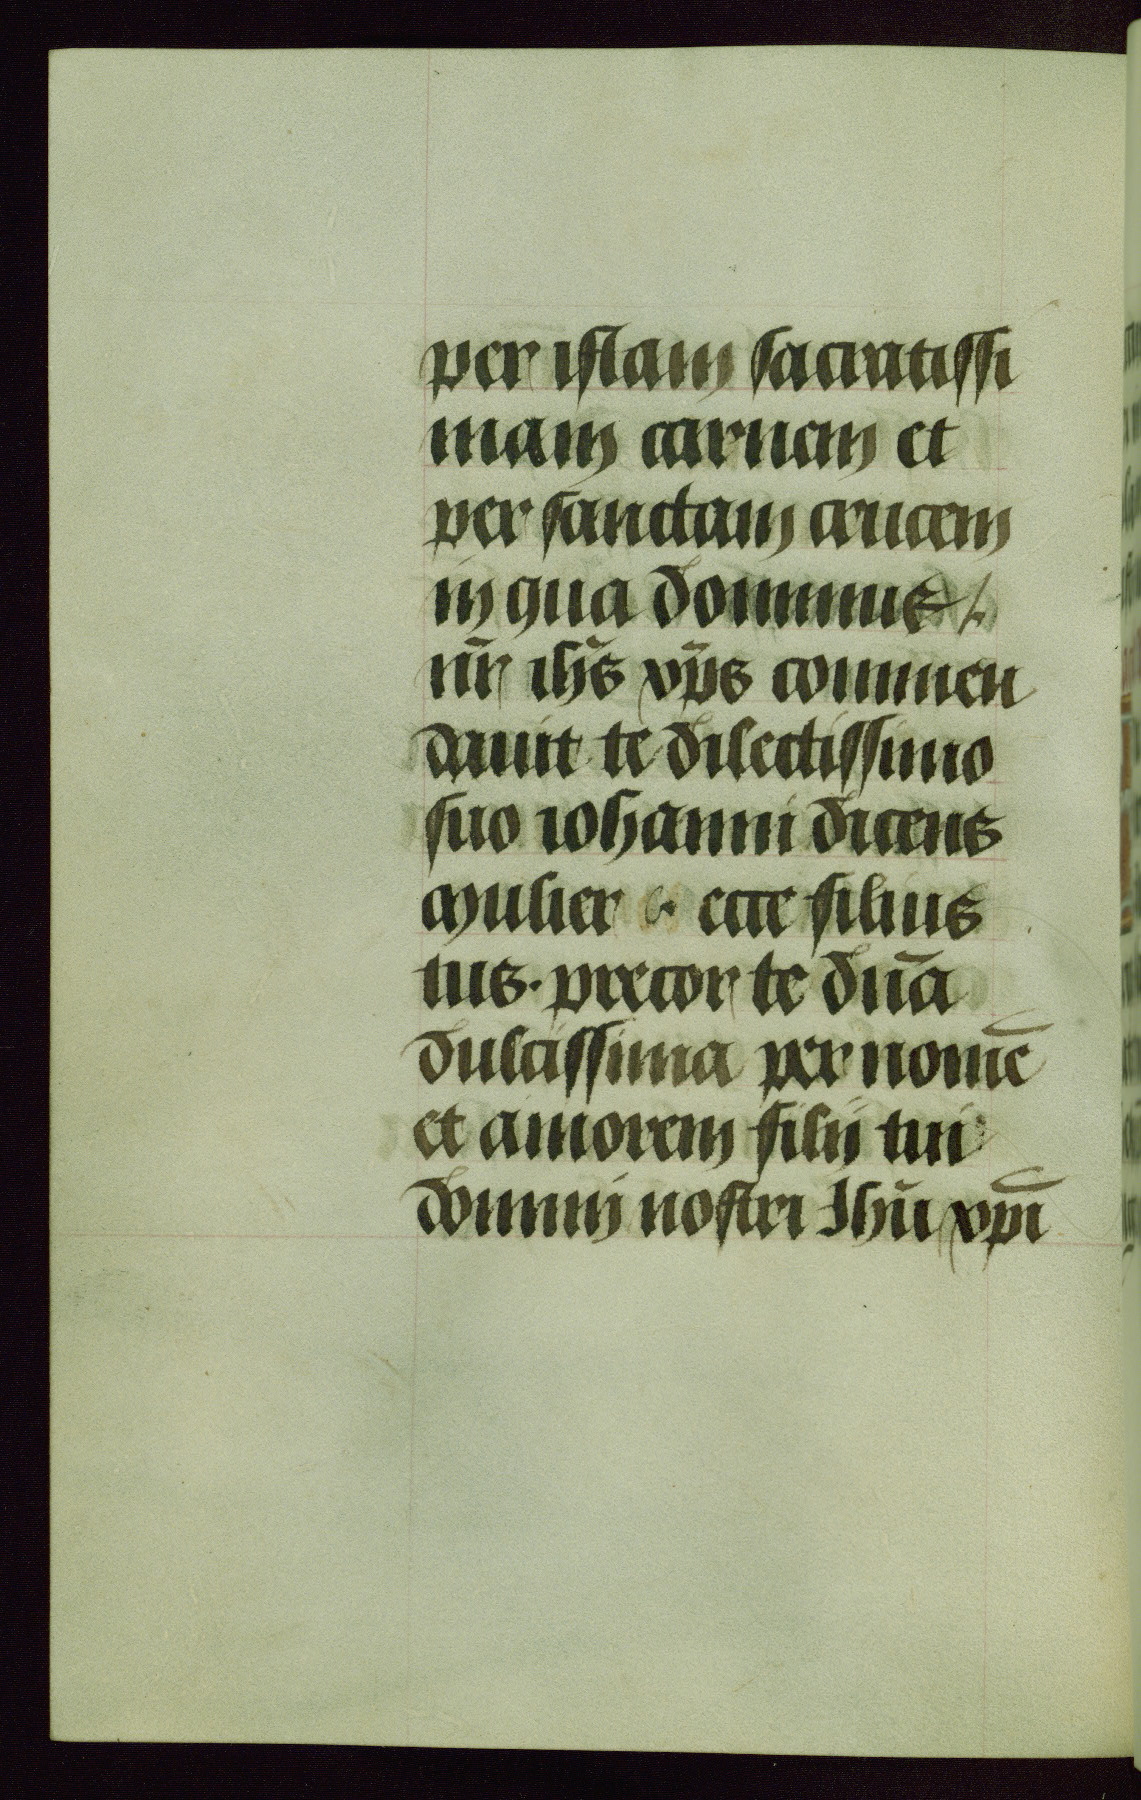 per istam sacratissi
mam carnem et
per sanctam crucem
in qua dominus
nr̄ ihs̄ xp̄s commen
dauit te dilectissimo
suo iohanni dicens
mulier ecce filius
tus. precor te dn̄a
dulcissima per nomē
et amorem filij tui
domini nostri Ihū xpī